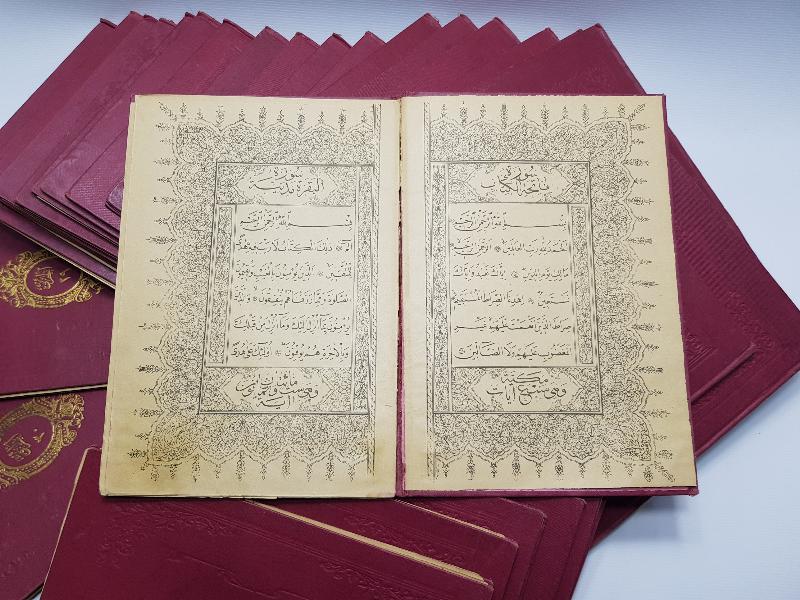 سورة
فاتحة الكتاب
بسم الله الرحمن الرحيم
الحمد لله رب العالمين الرحمن الرحيم
مالك يوم الدين اياك نعبد واياك
نستعين اهدنا الصراط المستقيم
صراط الذين انعمت عليهم غير
المغضوب عليهم ولا الضالين
مكية
وهي سبع آيات
سورة
البقرة مدنية
بسم الله الرحمن الرحيم
الم ذلك الكتاب لا ريب فيه هدى
للمتقين الذين يؤمنون بالغيب ويقيمون
الصلوة ومما رزقناهم ينفقون والذين
يؤمنون بما انزل اليك وما انزل من قبلك
وبالآخرة هم يوقنون اولئك على هدى
مائتان
وهي ست وثمانون
آية